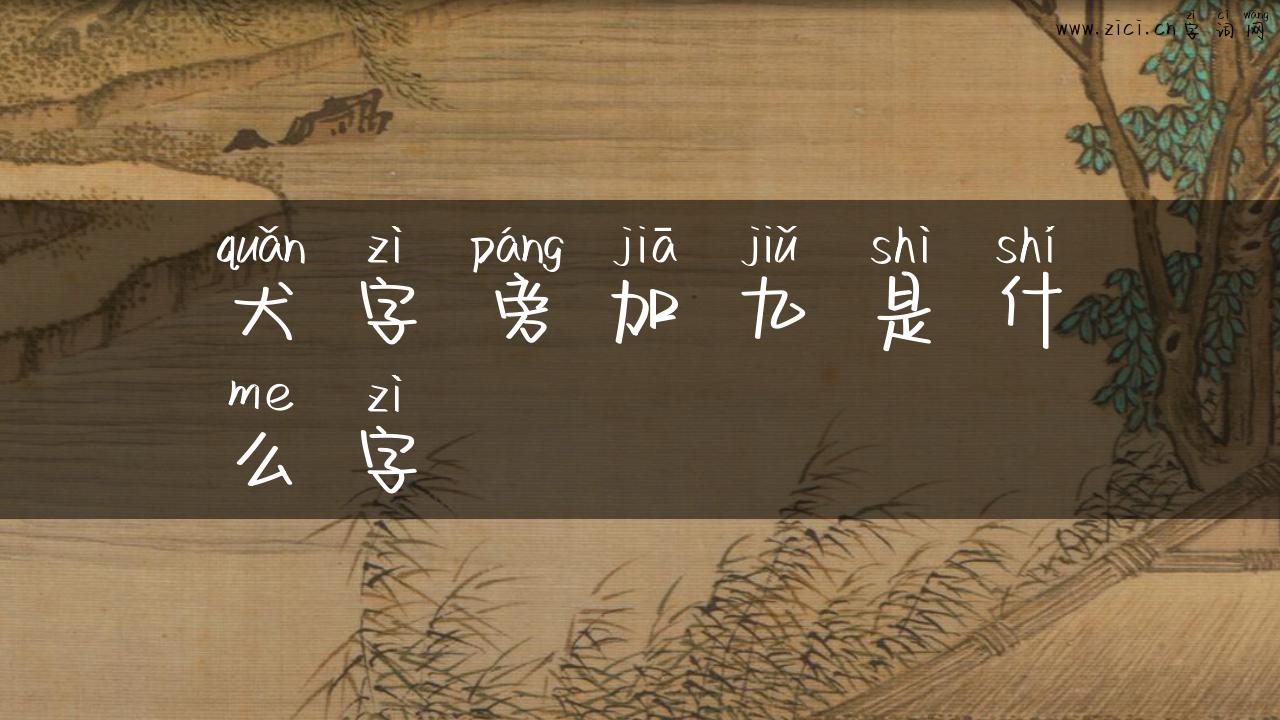 zì cí wǎng
www.zici.cn字词网
quǎn zì páng jiā jiǔ shì shí
犬字旁加九是什
me zì
么字